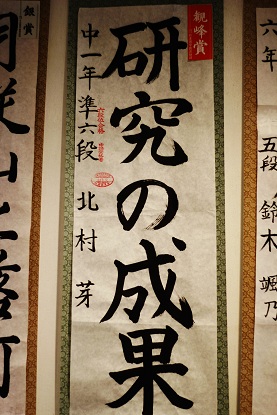 観峰賞
研究の成果
中一年 準六段 北村 芽
六年
五段 鈴木 颯乃
銀賞